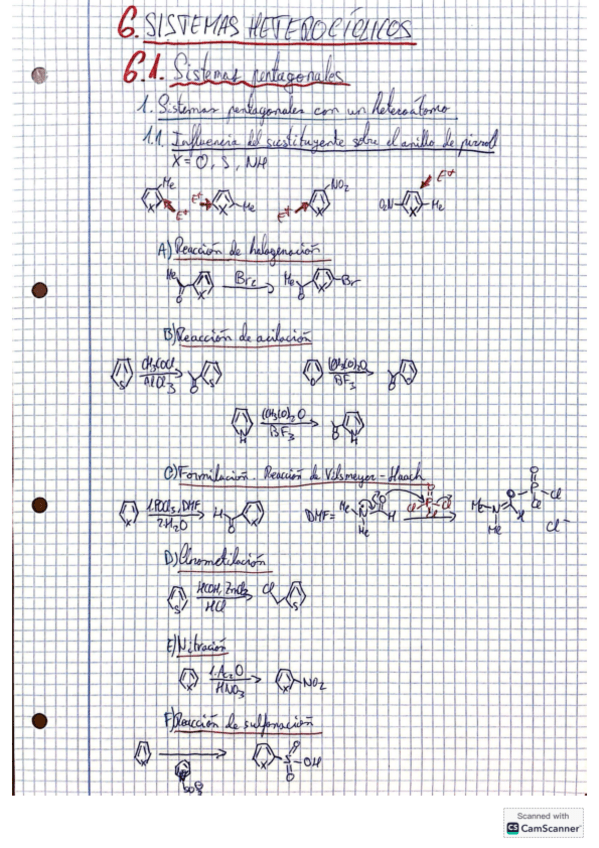 6. SISTEMAS HETEROCÍCLICOS
6.1. Sistemas pentagonales
1. Sistemas pentagonales con un heteroátomo
1.1. Influencia del sustituyente sobre el anillo de pirrol
X = O, S, NH
Me E⊕ E⊕ Me E⊕ NO2 O2N Me E⊕
X X X X
A) Reacción de halogenación
Me O X Br2 Me O X Br
B) Reacción de acilación
S CH3COCl AlCl3 O S O (CH3CO)2O BF3 O O
N H (CH3CO)2O BF3 O N H
C) Formilación. Reacción de Vilsmeyer-Haack
X 1. POCl3, DMF 2. H2O H O X DMF = Me N Me O H Cl P O Cl Cl Me N Me O H P O Cl Cl Cl-
D) Clorometilación
S HCOH, ZnCl2 HCl Cl S
E) Nitración
X 1. Ac2O HNO3 X NO2
F) Reacción de sulfonación
X X S O O OH
Scanned with
CS CamScanner